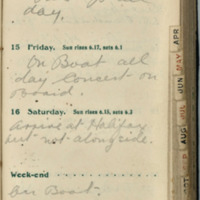 day.
15 Friday. Sun rises 6.17, sets 6.1
On Boat all
day Concert on
Board.
16 Saturday. Sun rises 6.15, sets 6.3
Arrive at Halifax
but not alongside.
Week-end
On Boat.
APR
MAY
JUN
JUL
AUG
SEP
OCT